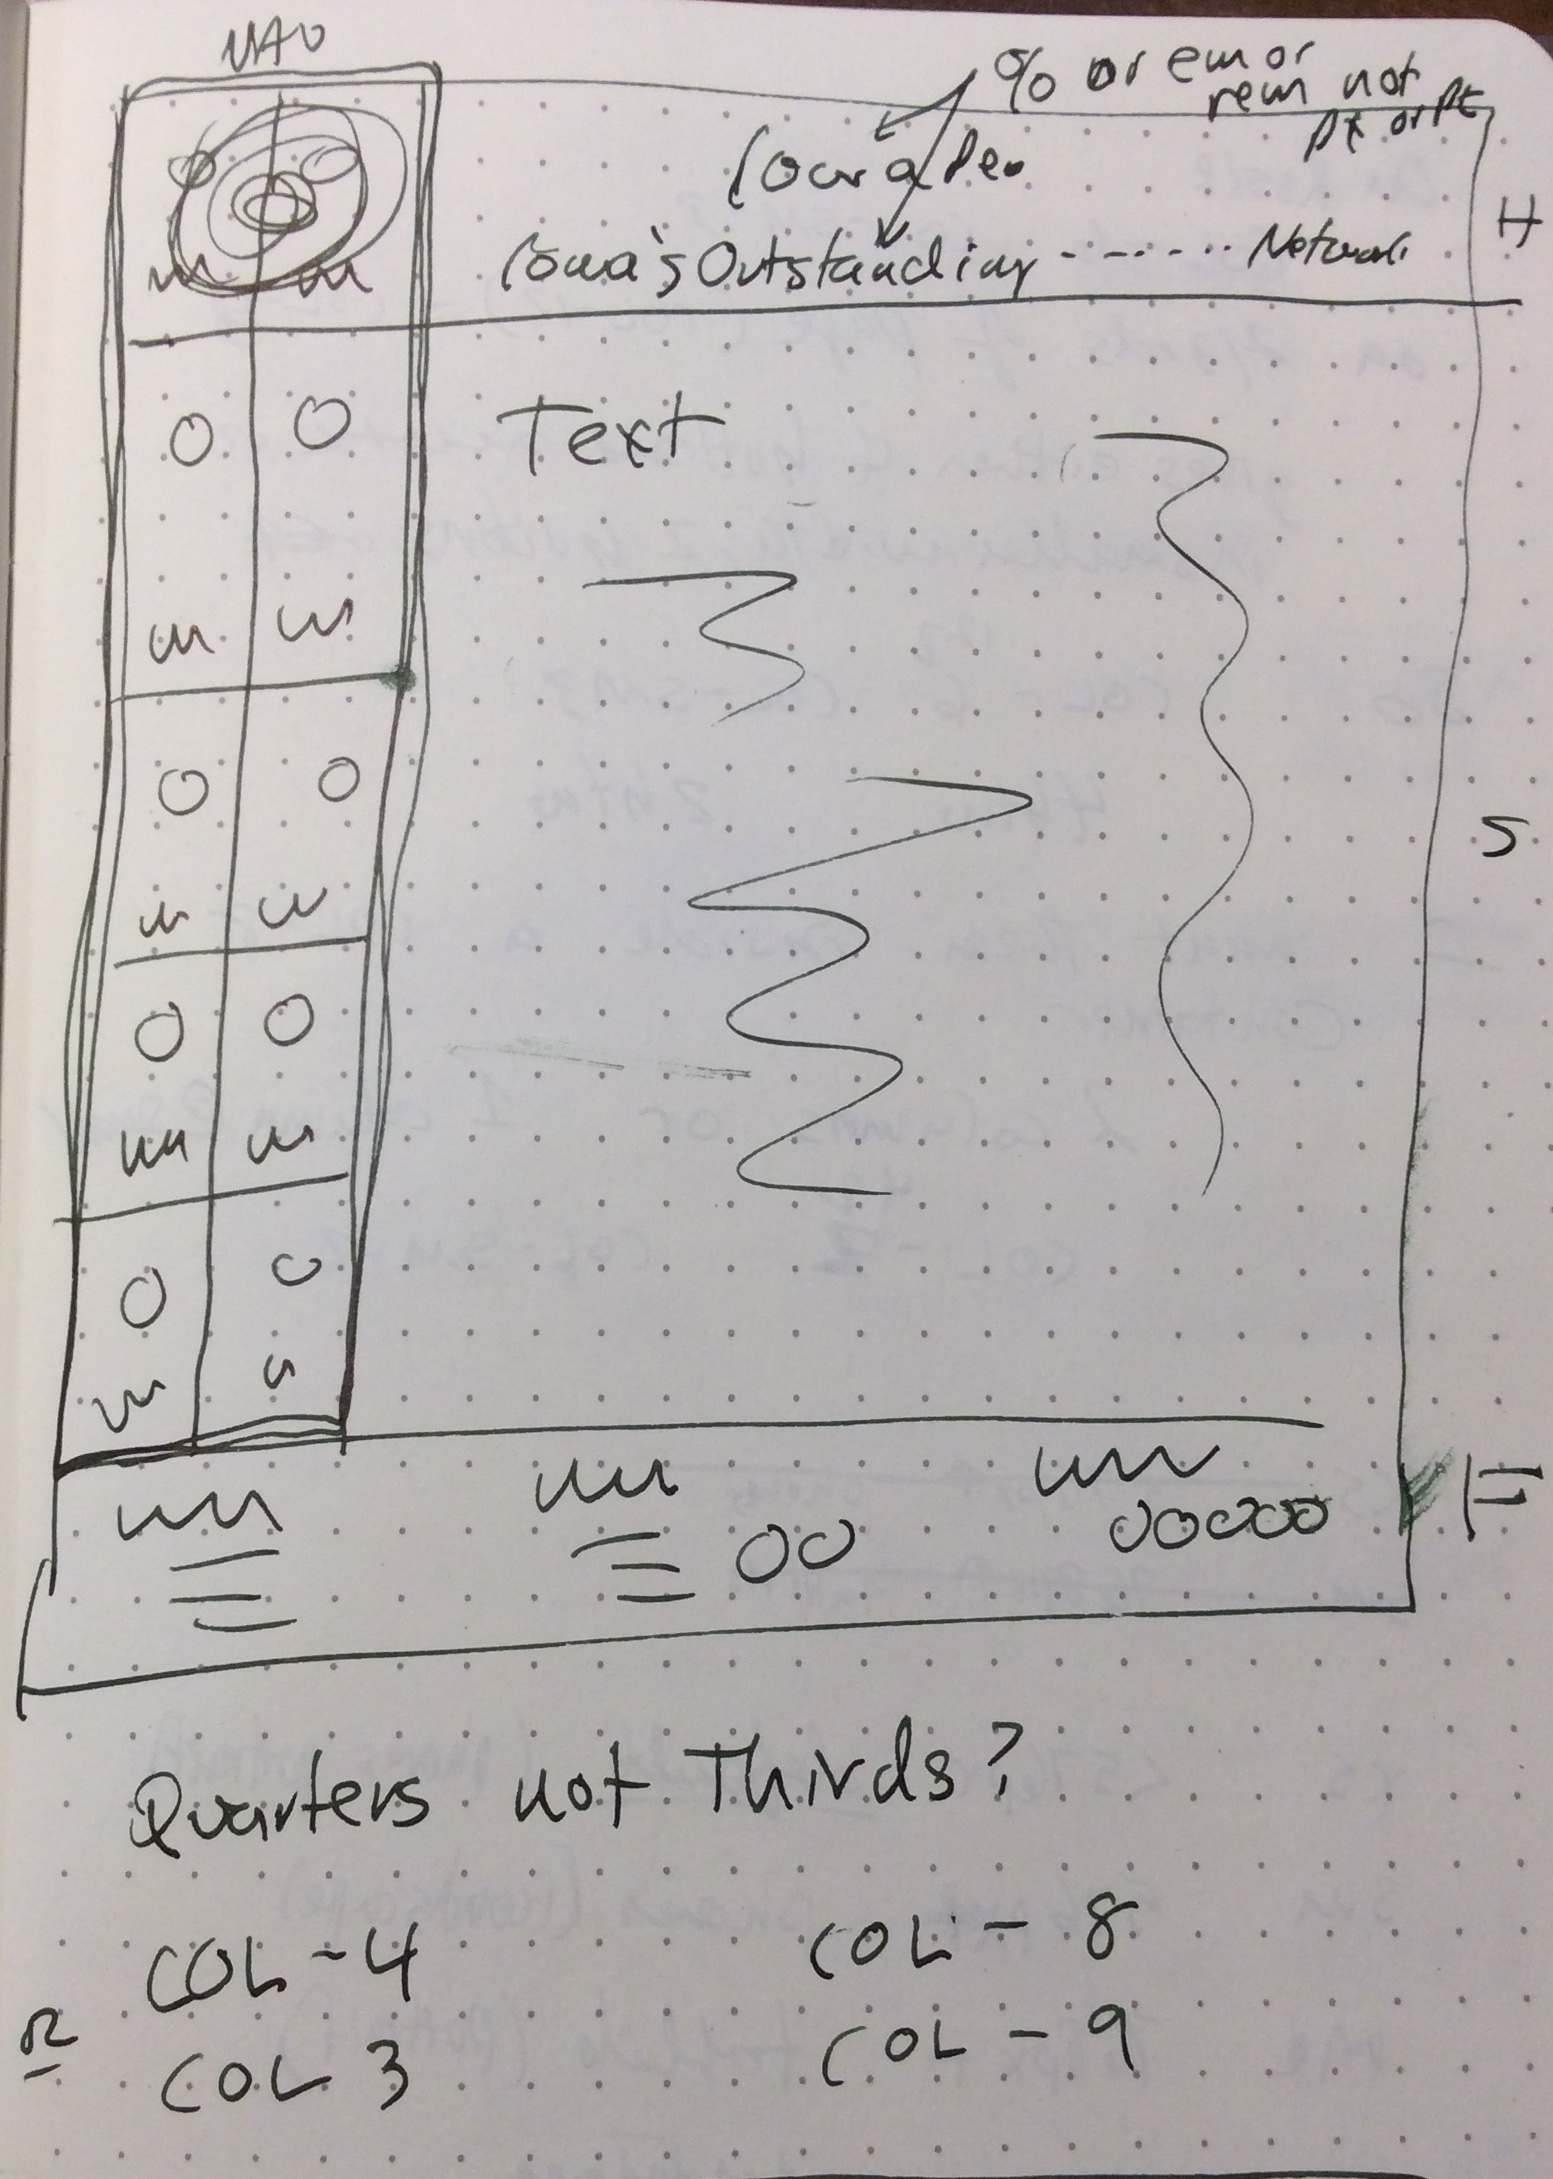 NAV
% or em or
rem not
px or pt
Iowa's Outstanding ------- Network
H
Text
S
F
Quarters not Thirds?
COL - 4 COL - 8
or
COL 3 COL - 9